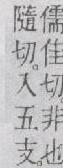 儒佳切。非也
隨切。入五支。